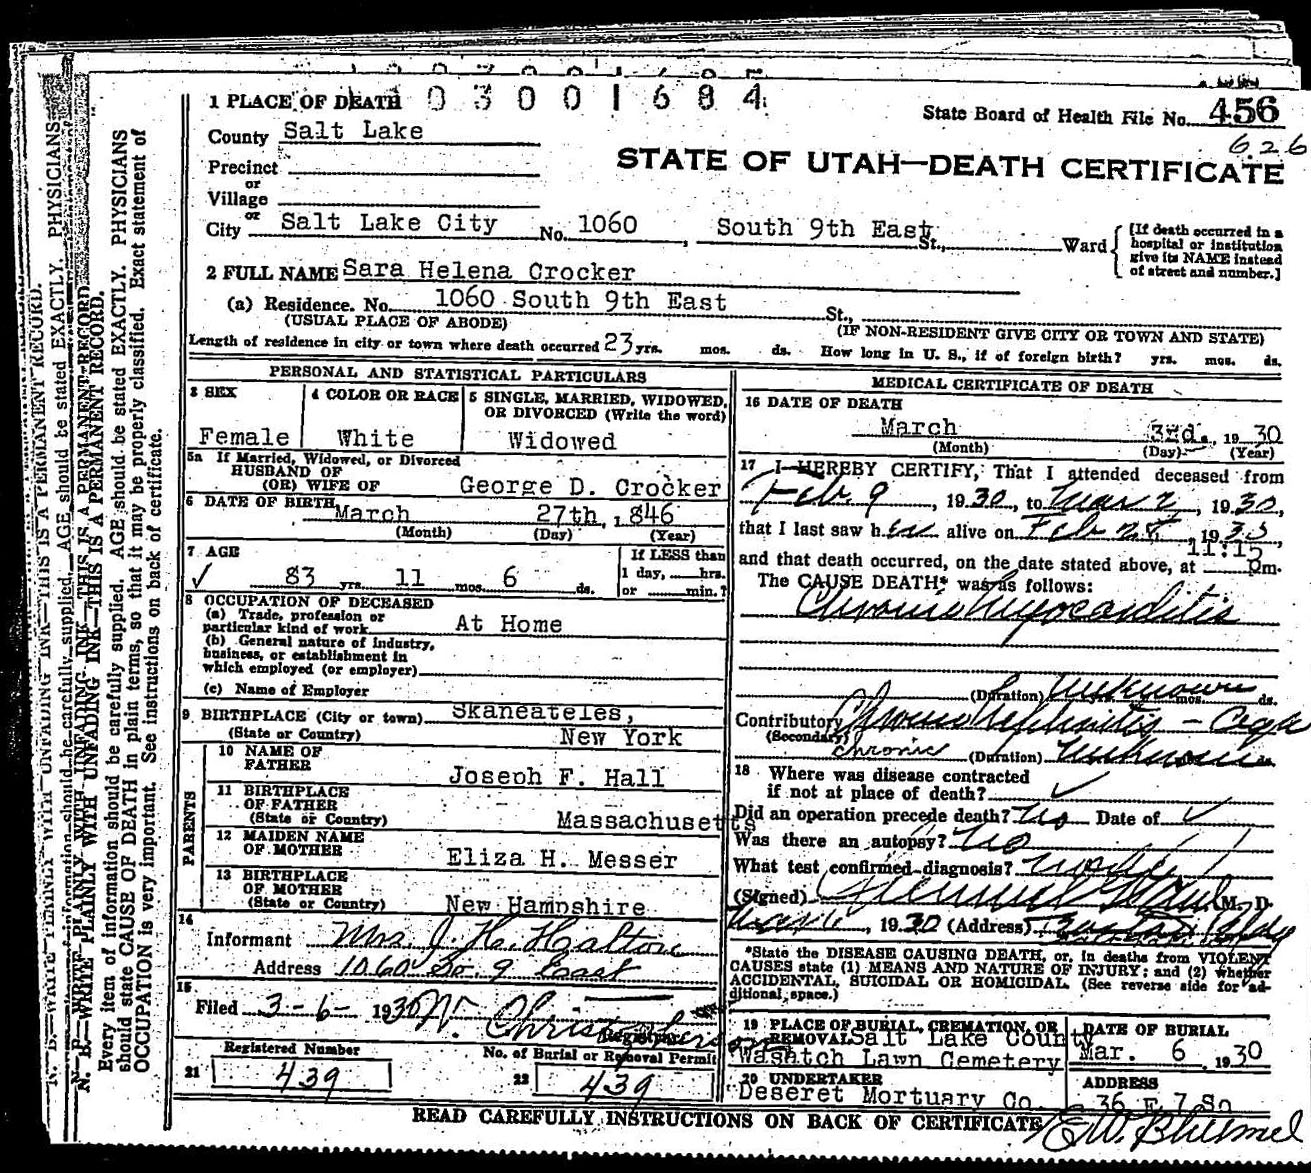 1 PLACE OF DEATH 03001684
State Board of Health File No. 456
626
County Salt Lake
STATE OF UTAH—DEATH CERTIFICATE
Precinct
or
Village
or
City Salt Lake City No. 1060 South 9th East St., Ward
[If death occurred in a hospital or institution give its NAME instead of street and number.]
2 FULL NAME Sara Helena Crocker
(a) Residence. No. 1060 South 9th East St.,
(USUAL PLACE OF ABODE) (IF NON-RESIDENT GIVE CITY OR TOWN AND STATE)
Length of residence in city or town where death occurred 23 yrs. mos. ds. How long in U. S., if of foreign birth? yrs. mos. ds.
PERSONAL AND STATISTICAL PARTICULARS
3 SEX
Female
4 COLOR OR RACE
White
5 SINGLE, MARRIED, WIDOWED, OR DIVORCED (Write the word)
Widowed
5a If Married, Widowed, or Divorced
HUSBAND OF
(OR) WIFE OF George D. Crocker
6 DATE OF BIRTH March 27th, 1846
(Month) (Day) (Year)
7 AGE
83 yrs. 11 mos. 6 ds.
If LESS than
1 day, hrs.
or min.?
8 OCCUPATION OF DECEASED
(a) Trade, profession or
particular kind of work At Home
(b) General nature of industry,
business, or establishment in
which employed (or employer)
(c) Name of Employer
9 BIRTHPLACE (City or town) Skaneateles,
(State or Country) New York
PARENTS
10 NAME OF
FATHER Joseph F. Hall
11 BIRTHPLACE
OF FATHER
(State or Country) Massachusetts
12 MAIDEN NAME
OF MOTHER Eliza H. Messer
13 BIRTHPLACE
OF MOTHER
(State or Country) New Hampshire
14
Informant Mrs. J. H.
Address 1060 So. 9 East
15
Filed 3-6- 1930
Registrar
Registered Number
21 439
No. of Burial or Removal Permit
22 439
MEDICAL CERTIFICATE OF DEATH
16 DATE OF DEATH
March 3rd., 1930
(Month) (Day) (Year)
17 I HEREBY CERTIFY, That I attended deceased from
Feb. 9, 1930, to Mar 2, 1930,
that I last saw her alive on Feb 28, 1930,
11:15
and that death occurred, on the date stated above, at pm.
The CAUSE DEATH* was as follows:
Chronic Myocarditis
(Duration) unknown mos. ds.
Contributory Chronic Nephritis —
(Secondary)
chronic (Duration) unknown
18 Where was disease contracted
if not at place of death?
Did an operation precede death? no Date of
Was there an autopsy? no
What test confirmed diagnosis?
(Signed) M. D.
1930 (Address)
*State the DISEASE CAUSING DEATH, or, in deaths from VIOLENT
CAUSES state (1) MEANS AND NATURE OF INJURY; and (2) whether
ACCIDENTAL, SUICIDAL OR HOMICIDAL. (See reverse side for ad-
ditional space.)
19 PLACE OF BURIAL, CREMATION, OR
REMOVAL Salt Lake County
Wasatch Lawn Cemetery
DATE OF BURIAL
Mar. 6, 1930
20 UNDERTAKER
Deseret Mortuary Co.
ADDRESS
36 E 7 So
READ CAREFULLY INSTRUCTIONS ON BACK OF CERTIFICATE
N. B.—WRITE PLAINLY WITH UNFADING INK—THIS IS A PERMANENT RECORD.
Every item of information should be carefully supplied. AGE should be stated EXACTLY. PHYSICIANS
should state CAUSE OF DEATH in plain terms, so that it may be properly classified. Exact statement of
OCCUPATION is very important. See instructions on back of certificate.